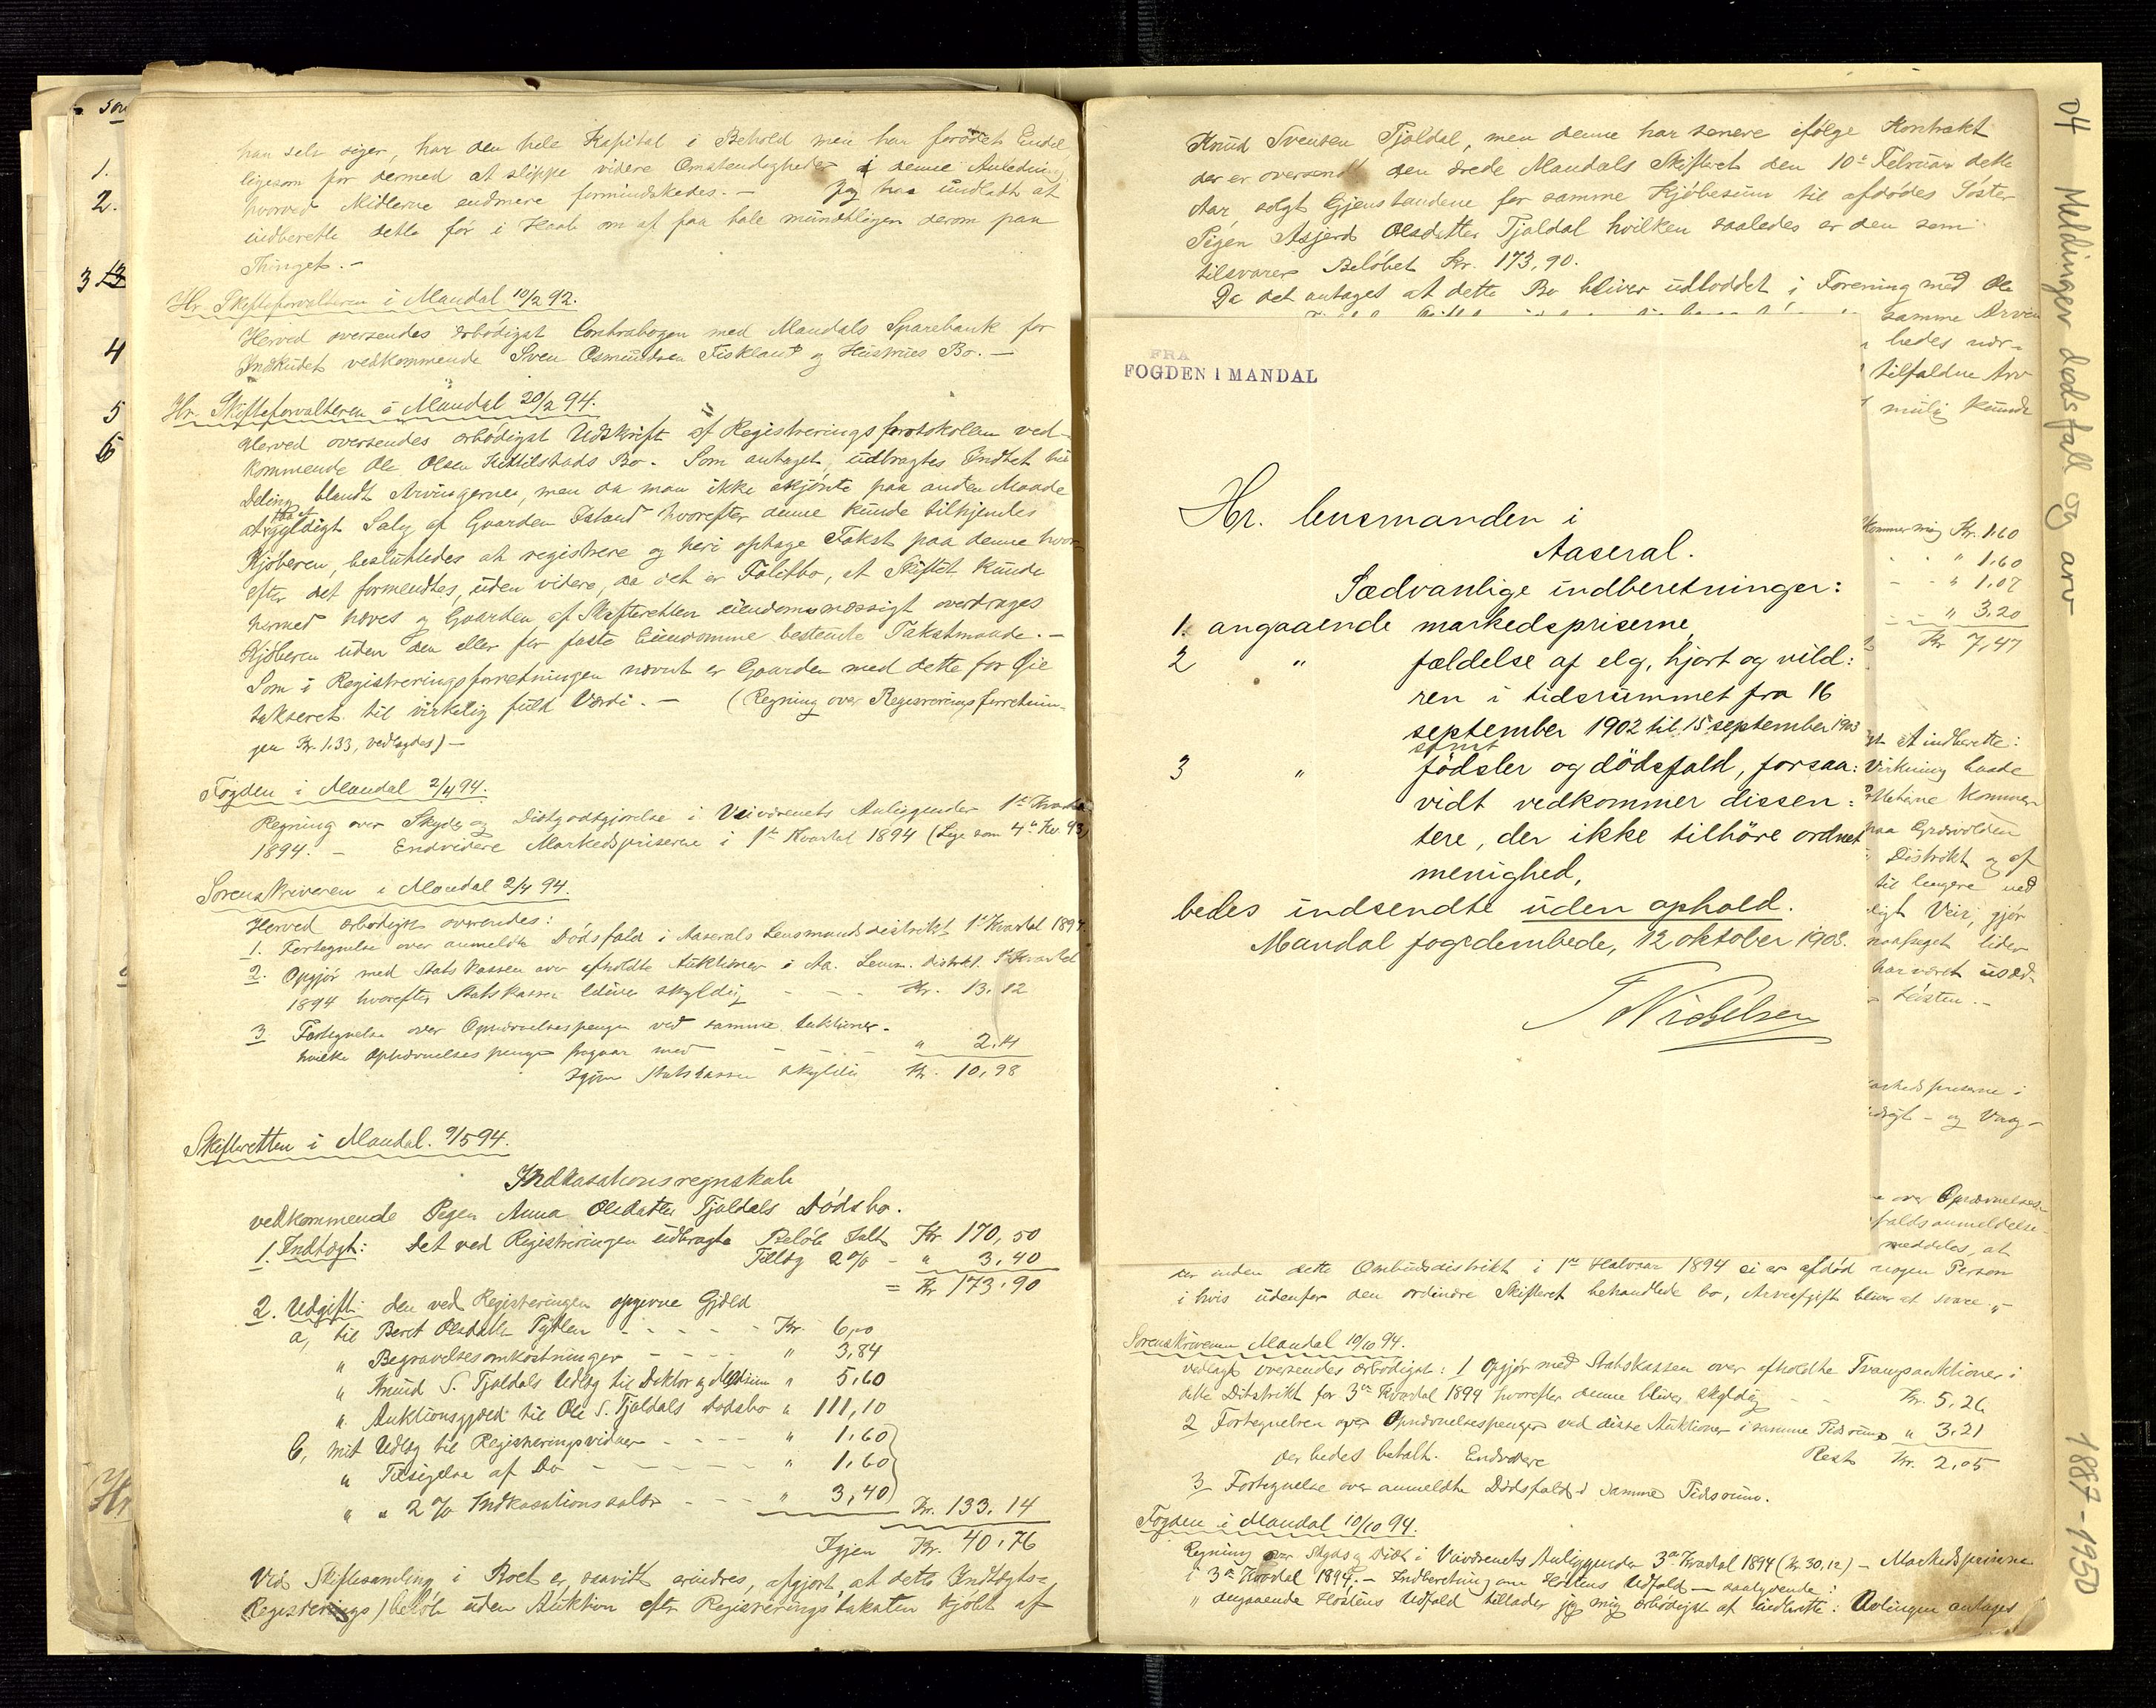 han selv siger, har den hele Kapital i Behold men har forødet Endel
ligesom for dermed at slippe videre Omstendigheder i denne Anledning
hvorved Midlerne endmere formindskedes. – Jeg har undladt at
indberette dette før i Haab om at faa tale mundtligen derom paa
Thinget. –
Hr. Skifteforvalteren i Mandal 10/2 92.
Herved oversendes ærbødigst Contrabogen med Mandals Sparebank for
Indskudet vedkommende Sven Osmundsen Fiskland og Hustrues Bo. –
Hr. Skifteforvalteren i Mandal 20/2 94.
Herved oversendes ærbødigst Udskrift af Registreringsprotokollen ved-
kommende Ole Olsen Kittilstads Bo. Som antaget, udbragtes Intet til
Deling blandt Arvingerne, men da man ikke skjønte paa anden Maade
at faa et gyldigt Salg af Gaarden hvorefter denne kunde tilhjendes
Kjøberen, besluttedes at registrere og heri optage Takst paa denne hvor-
efter det formendtes, uden videre, da det er Falitbo, at Skiftet kunde
hermed hæves og Gaarden af Skifteretten eiendomsmæssigt overdrages
Kjøberen uden den eller for faste Eiendomme bestemte Takstmaade. –
Som i Registreringsforretningen nævnt er Gaarden med dette for Øie
takseret til virkelig fuld Værdi. – (Regning over Registreringsforretnin-
gen Kr. 1.33, vedlagdes) –
Fogden i Mandal 2/4 94.
Regning over Skyds og Diætgodtgjørelse i Veivæsenets Anliggender 1ste Kvartal
1894. – Endvidere Markedspriserne i 1ste Kvartal 1894 (Lige som 4de Kv. 93)
Sorenskriveren i Mandal 2/4 94.
Herved ærbødigst oversendes:
1. Fortegnelse over anmeldte Dødsfald i Aaserals Lensmandsdistrikt 1ste Kvartal 1894.
2. Opgjør med Statskassen over afholdte Auktioner i Aa. Lensm. distrikt 1ste Kvartal
1894 hvorefter Statskassen bliver skyldig - - - Kr. 13.12
3 Fortegnelse over Opnævnelsespenge ved samme Auktioner.
hvilke Opnævnelsespenge fragaar med - - - " 2.14
Igjen Statskassen skyldig Kr. 10,98
Skifteretten i Mandal. 9/5 94.
Indkassationsregnskab
vedkommende Pigen Anna Olsdatter Tjaldals Dødsbo.
1. Indtægt: Det ved Registreringen udbragte Beløb Ialt Kr 170,50
Tillæg 2% - " 3,40
= Kr 173.90
2. Udgift: den ved Registreringen opgivne Gjæld
a, til Beret Olsdatter - - - - - Kr. 6,00
" Begravelsesomkostninger - - - - " 3,84
" Knud S. Tjaldals Udlæg til Doktor og Medicin " 5,60
" Auktionsgjæld til Ole S. Tjaldals Dødsbo " 111,10
b, mit Udlæg til Registreringsvidner - - - - " 1.60
" Tilsigelse af Do - - - - - " 1,60
" " 2% Indkassationssalær - - - " 3,40 Kr. 133.14
Igjen Kr. 40.76
Ved Skiftesamling i Boet er, saavidt erindres, afgjort, at dette Indtægts-
(Registrerings) beløb uden Auktion efter Registreringstaksten kjøbt af
Knud Svensen Tjaldal, men denne har senere ifølge Kontrakt
der er oversendt den ærede Mandals Skifteret den 10de Februar dette
Aar, solgt Gjenstandene for samme Kjøbesum til afdødes Søster
Pigen Asjerd Olsdatter Tjaldal hvilken saaledes er den som
tilsvarer Beløbet Kr. 173,90.
Da det antages at dette Bo bliver udloddet i Forening med Ole
samme Arvin
bedes nær-
tilfaldne Arv
mulig kunde
FRA
FOGDEN I MANDAL
Hr. lensmanden i
Aaseral.
Sædvanlige indberetninger:
1. angaaende markedspriserne,
2 " fældelse af elg, hjort og vild:
ren i tidsrummet fra 16
september 1902 til 15 september 1903
samt
3 " fødsler og dødsfald, forsaa:
vidt vedkommer dissen:
tere, der ikke tilhöre ordnet
menighed,
bedes indsendte uden ophold.
Mandal fogedembede, 12 oktober 1903.
kommer mig Kr. 1.60
" 1.60
" 1.07
" 3.20
Kr 7,47
at indberette:
Virkning baade
kommer
paa Græsvolden
Distrikt og af
til længere ned
Veir, gjør
lider
har været usæd-
Høsten. –
Markedspriserne i
- og Vog-
over Opnævnelses-
faldsanmeldelse
meddeles, at
der inden dette Ombudsdistrikt i 1ste Halvaar 1894 ei er afdød nogen Person
i hvis udenfor den ordinære Skifteret behandlede bo, Arveafgift bliver at svare. –
Sorenskriveren Mandal 10/10 94.
vedlagt oversendes ærbødigst: 1 Opgjør med Statskassen over afholdte Tvangsauktioner i
dette Distrikt for 3die Kvartal 1894 hvorefter denne bliver skyldig - - Kr. 5,26
2 Fortegnelsen over Opnævnelsespenger ved disse Auktioner i samme Tidsrum " 3.21
der bedes betalt. Endvidere Rest Kr. 2,05
3 Fortegnelse over anmeldte Dødsfald i samme Tidsrum.
Fogden i Mandal 10/10 94.
Regning over Skyds og Diæt i Veivæsenets Anliggender 3die Kvartal 1894 (Kr. 30,12) – Markedspriserne
i 3die Kvartal 1894, – Indberetning om Høstens Udfald – saalydende:
" Angaaende Høstens Udfald tillader jeg mig ærbødigst at indberette: Avlingen antages
04 Meldinger dødsfall og arv 1887-1950
1.
2.
3
4
5
6